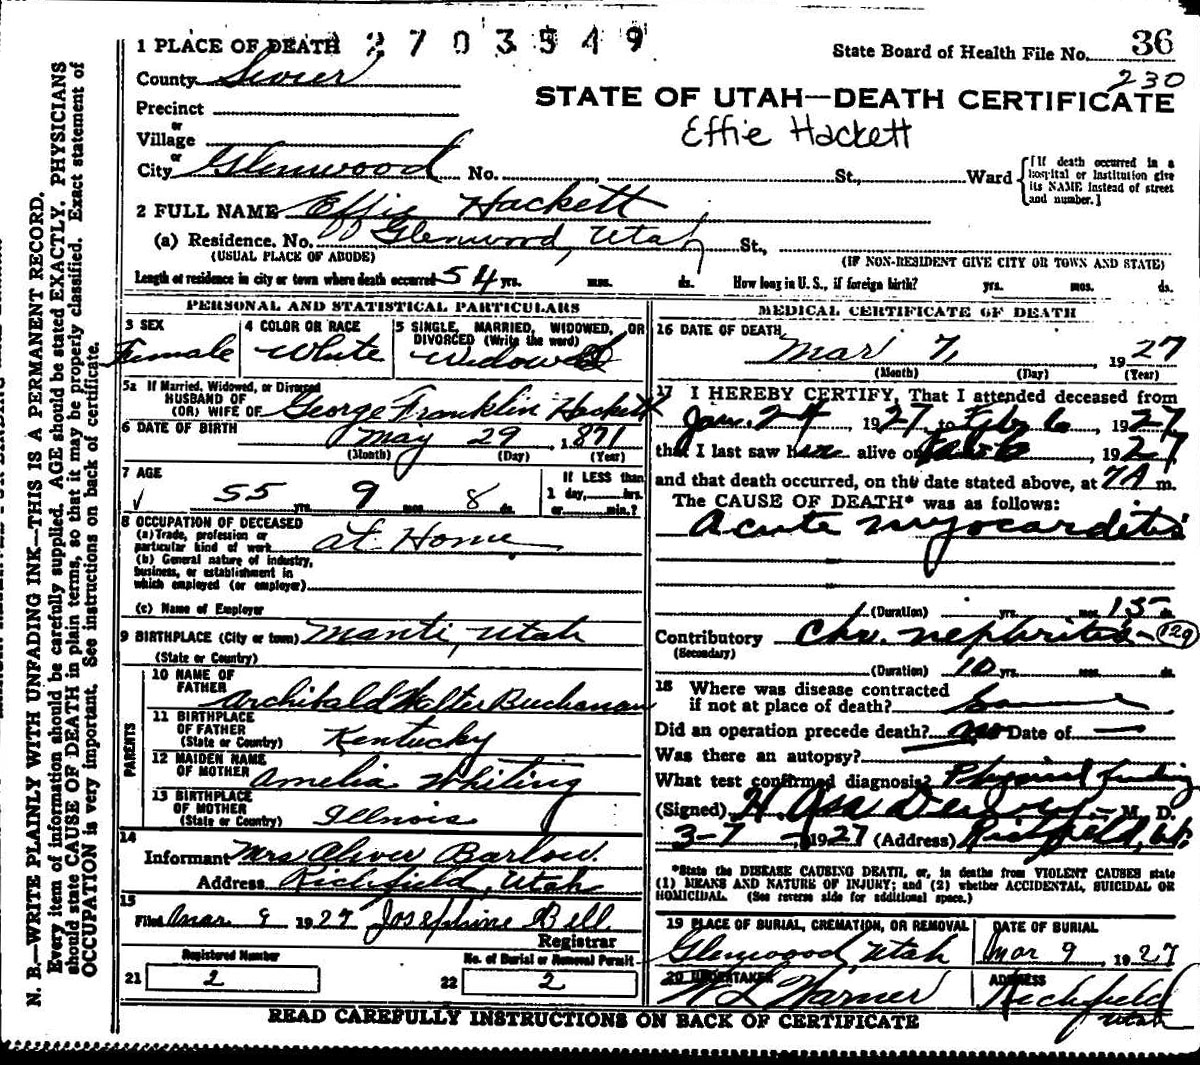 1 PLACE OF DEATH 2703549
State Board of Health File No. 36
County Sevier
230
STATE OF UTAH—DEATH CERTIFICATE
Precinct
Effie Hackett
or
Village
or
City Glenwood No. St., Ward
[If death occurred in a hospital or institution give its NAME instead of street and number.]
2 FULL NAME Effie Hackett
(a) Residence. No. Glenwood, Utah St.,
(USUAL PLACE OF ABODE) (IF NON-RESIDENT GIVE CITY OR TOWN AND STATE)
Length of residence in city or town where death occurred 54 yrs. mos. ds. How long in U. S., if foreign birth? yrs. mos. ds.
PERSONAL AND STATISTICAL PARTICULARS
3 SEX
Female
4 COLOR OR RACE
White
5 SINGLE, MARRIED, WIDOWED, OR
DIVORCED (Write the word)
Widowed
5a If Married, Widowed, or Divorced
HUSBAND OF
(OR) WIFE OF George Franklin Hackett
6 DATE OF BIRTH May 29, 1871
(Month) (Day) (Year)
7 AGE
55 yrs. 9 mos. 8 ds.
If LESS than
1 day, hrs.
or min.?
8 OCCUPATION OF DECEASED
(a) Trade, profession or
particular kind of work at Home
(b) General nature of industry,
business, or establishment in
which employed (or employer)
(c) Name of Employer
9 BIRTHPLACE (City or town) Manti, Utah
(State or Country)
PARENTS
10 NAME OF
FATHER Archibald Walter Buchanan
11 BIRTHPLACE
OF FATHER
(State or Country) Kentucky
12 MAIDEN NAME
OF MOTHER Amelia Whiting
13 BIRTHPLACE
OF MOTHER
(State or Country) Illnois
14
Informant Mrs Oliver Barlow.
Address Richfield, Utah
15
Filed Mar 9 1927 Josephine Bell
Registrar
Registered Number
21 2
No. of Burial or Removal Permit
22 2
MEDICAL CERTIFICATE OF DEATH
16 DATE OF DEATH
Mar 7, 1927
(Month) (Day) (Year)
17 I HEREBY CERTIFY, That I attended deceased from
Jan. 24, 1927, to Feb 6, 1927,
that I last saw her alive on Feb 6, 1927,
and that death occurred, on the date stated above, at 7A m.
The CAUSE OF DEATH* was as follows:
Acute myocarditis
(Duration) yrs. mos. 15 ds.
Contributory Chr. nephritis – 129
(Secondary)
(Duration) 10 yrs. mos. ds.
18 Where was disease contracted
if not at place of death?
Did an operation precede death? no Date of —
Was there an autopsy?
What test confirmed diagnosis? Physical finding
(Signed) H. Asa M. D.
3-7, 1927 (Address) Richfield, Ut.
*State the DISEASE CAUSING DEATH, or, in deaths from VIOLENT CAUSES state
(1) MEANS AND NATURE OF INJURY; and (2) whether ACCIDENTAL, SUICIDAL OR
HOMICIDAL. (See reverse side for additional space.)
19 PLACE OF BURIAL, CREMATION, OR REMOVAL
Glenwood, Utah
DATE OF BURIAL
Mar 9, 1927
20 UNDERTAKER
Warner
ADDRESS
Richfield
Utah
READ CAREFULLY INSTRUCTIONS ON BACK OF CERTIFICATE
N. B.—WRITE PLAINLY WITH UNFADING INK—THIS IS A PERMANENT RECORD.
Every item of information should be carefully supplied. AGE should be stated EXACTLY. PHYSICIANS
should state CAUSE OF DEATH in plain terms, so that it may be properly classified. Exact statement of
OCCUPATION is very important. See instructions on back of certificate.